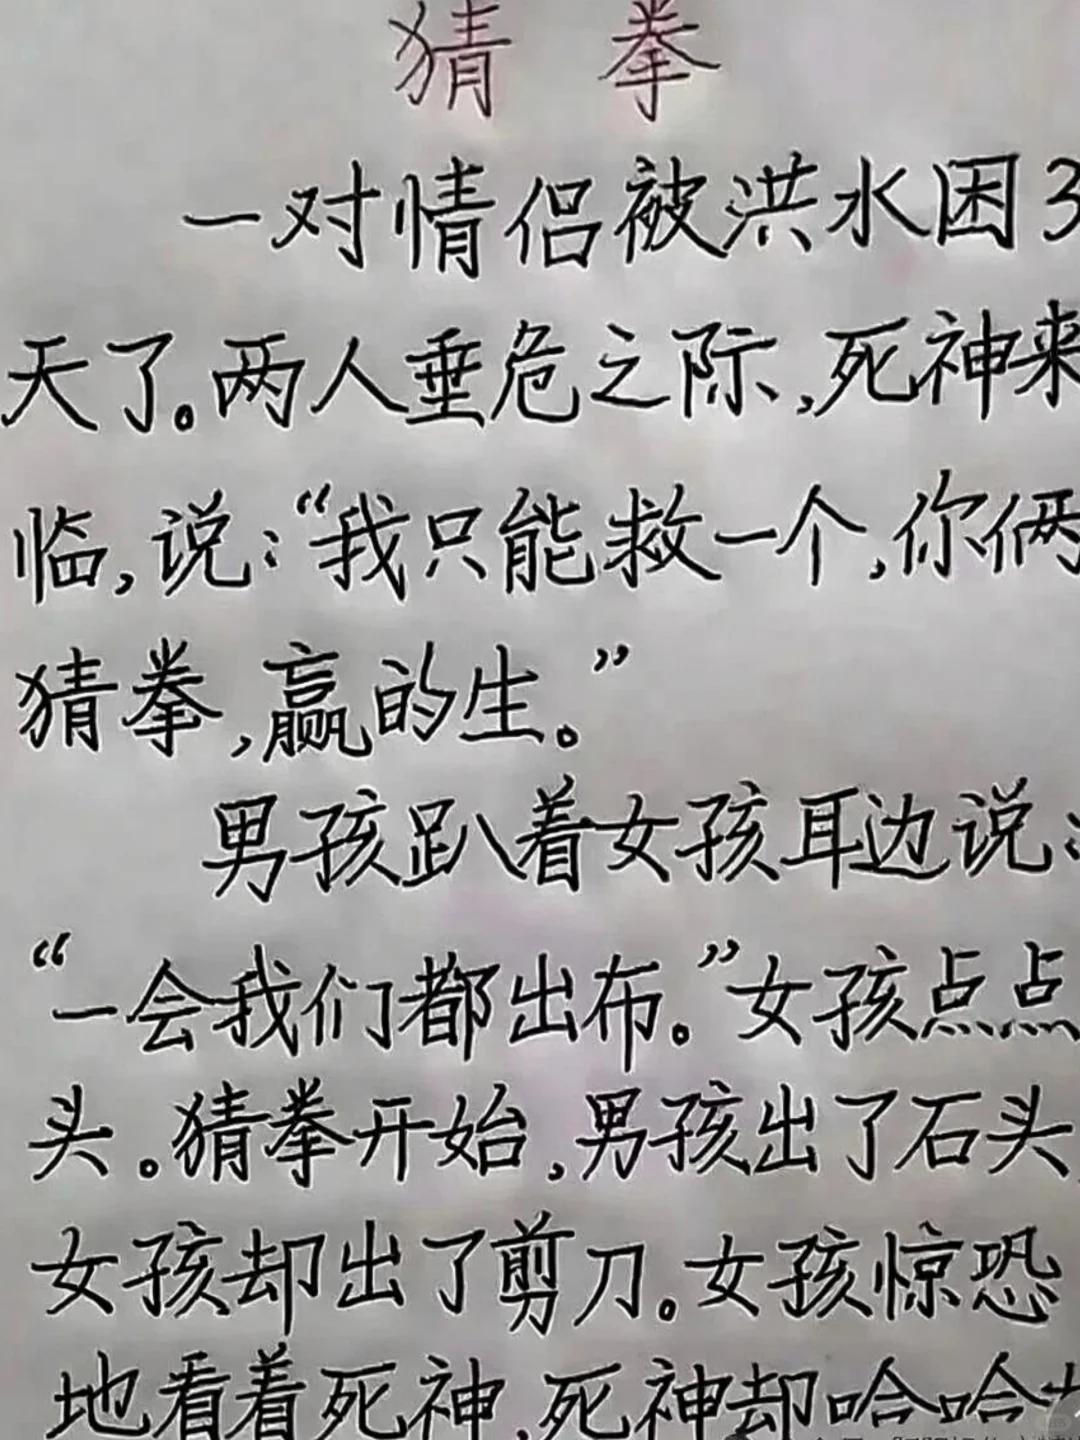 猜拳
一对情侣被洪水困3
天了。两人垂危之际,死神来
临,说:“我只能救一个,你俩
猜拳,赢的生。”
男孩趴着女孩耳边说:
“一会我们都出布。”女孩点点
头。猜拳开始,男孩出了石头,
女孩却出了剪刀。女孩惊恐
地看着死神,死神却哈哈